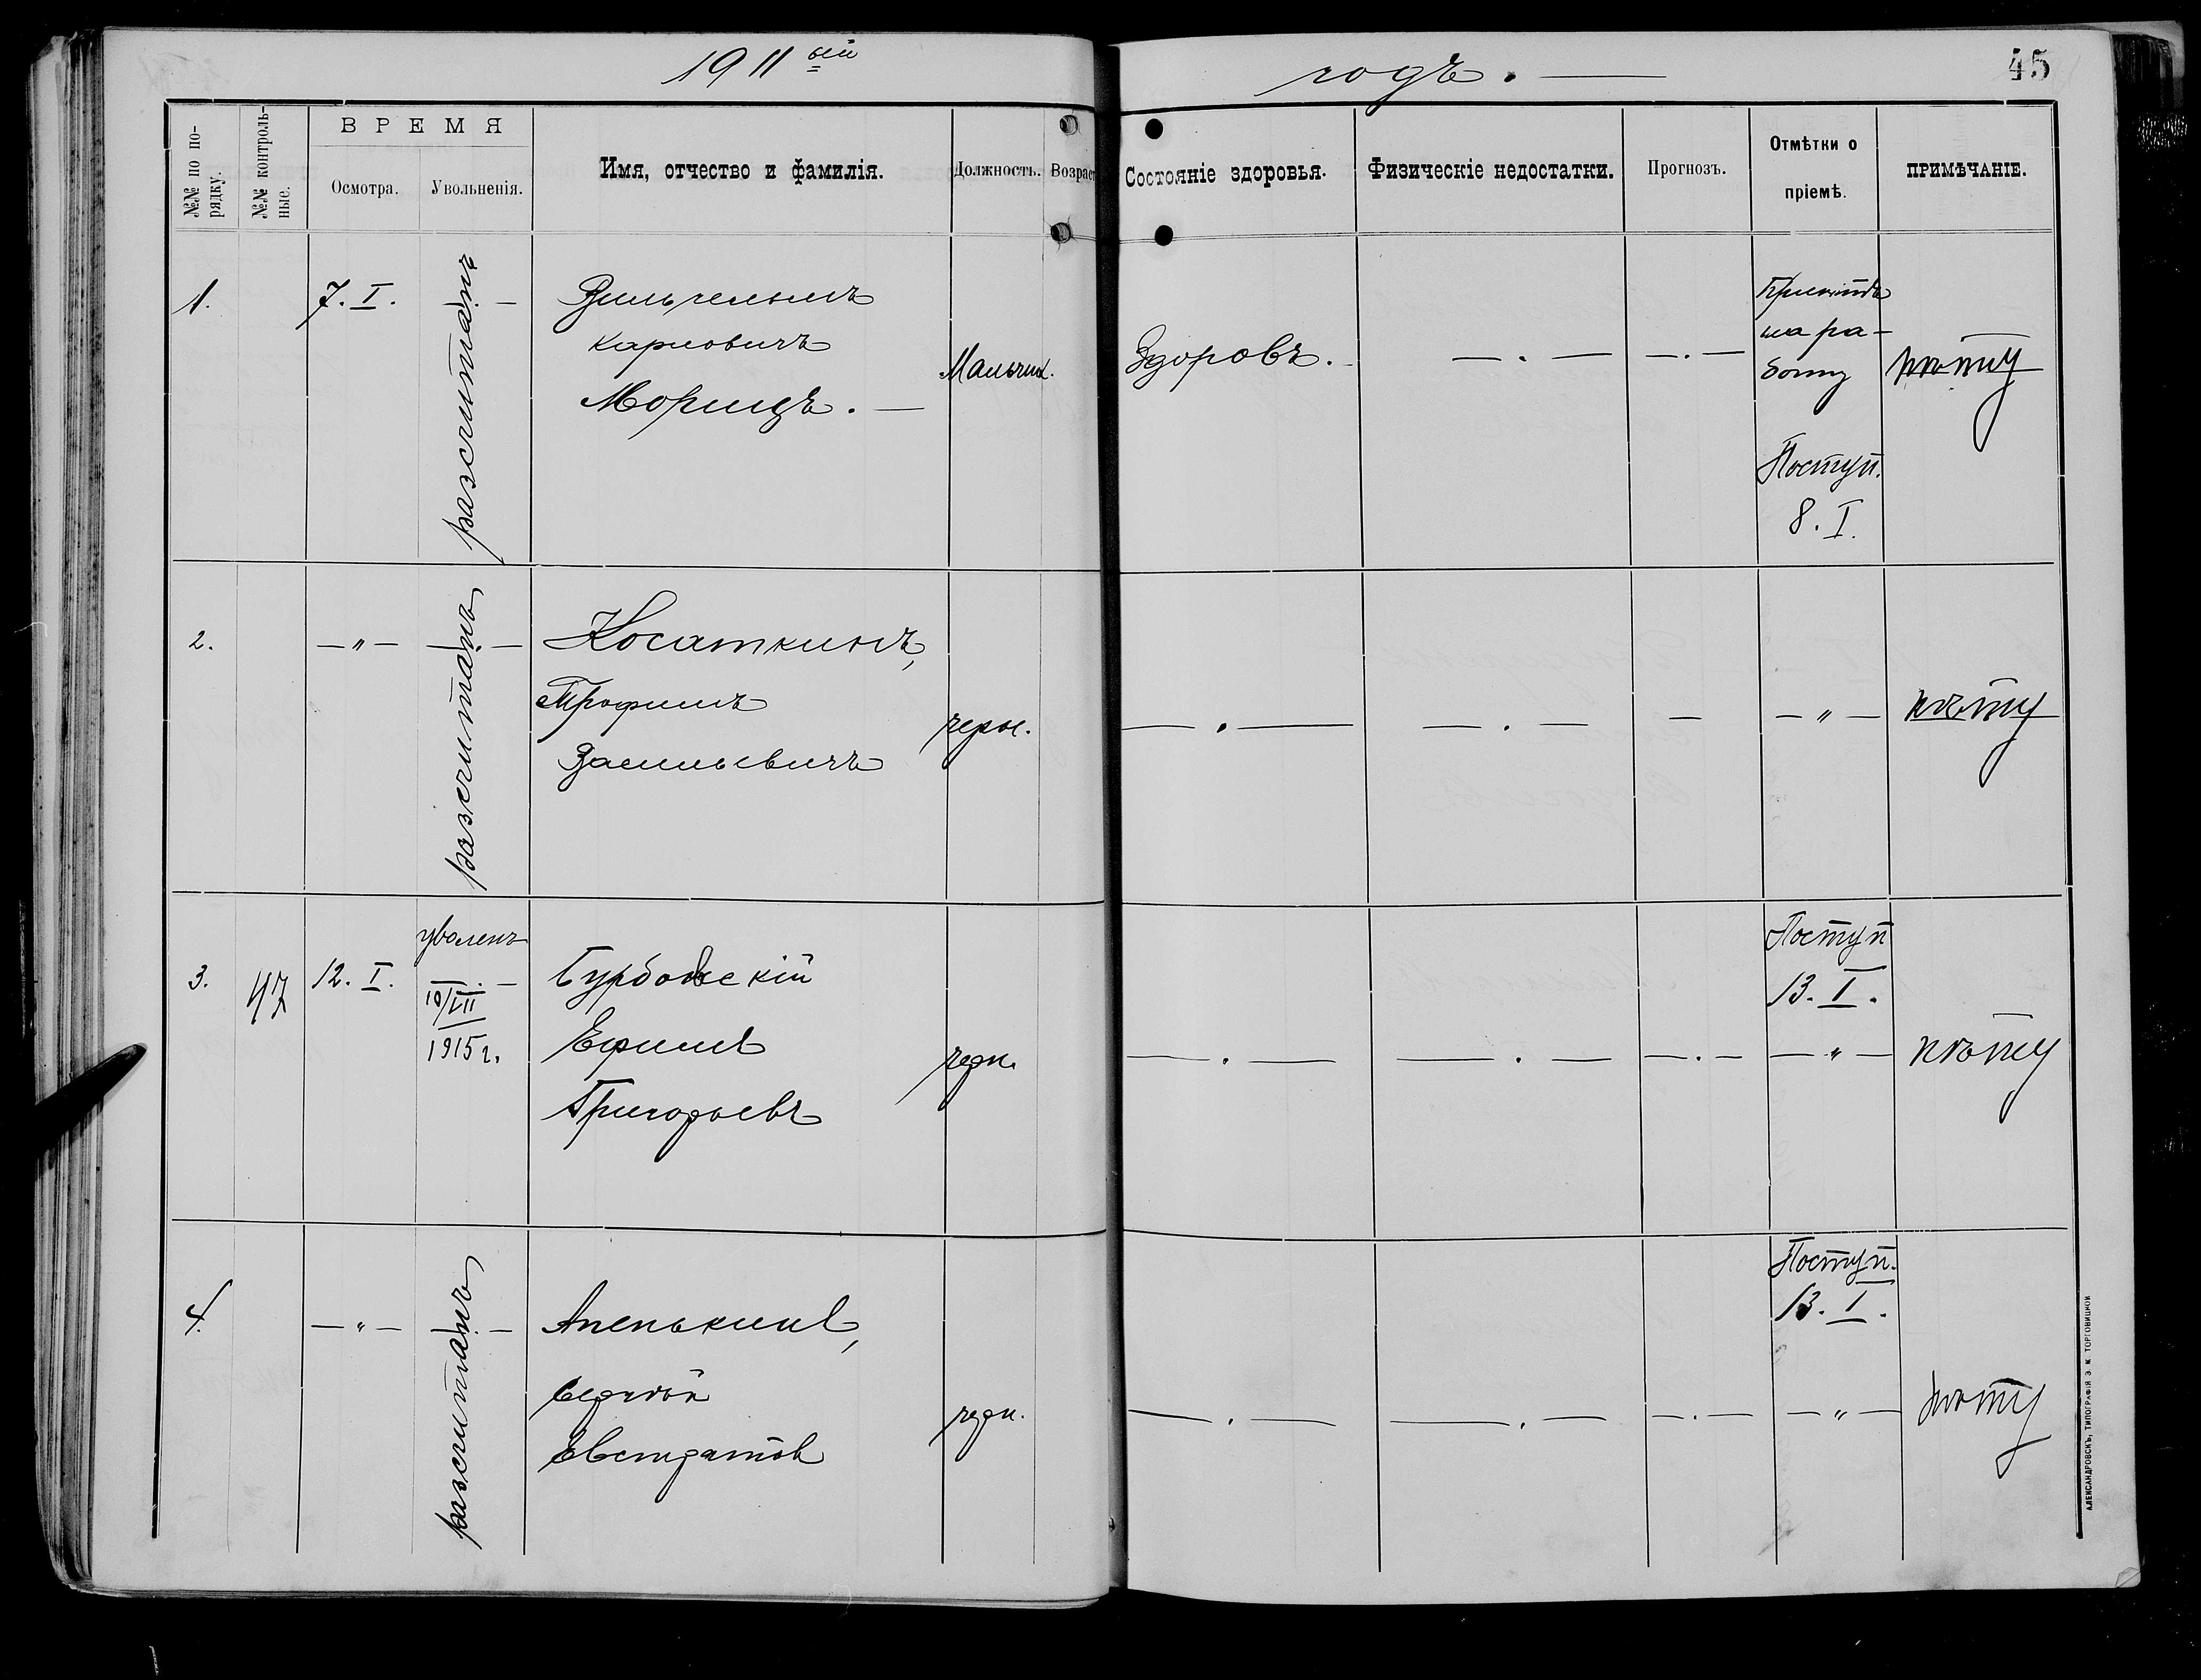 1911ый годъ. —
45
№№ по по-
рядку.
№№ контроль-
ные.
ВРЕМЯ
Осмотра.
Увольненія.
Имя, отчество и фамилія.
Должность.
Возраст
Состояніе здоровья.
Физическіе недостатки.
Прогнозъ.
Отмѣтки о
пріемѣ.
ПРИМѢЧАНІЕ.
1.
7. I.
разсчитанъ
Вильгельмъ
Карловичъ
Морицъ. —
Мальчик.
Здоровъ.
— . —
— . —
Принятъ
на ра-
боту
Поступ.
8. I.
2.
— „ —
разсчитанъ
Косаткинъ,
Трофимъ
Васильевичъ
черн.
— . —
— . —
—
— „ —
3.
47
12. I.
уволенъ
10/VII
1915 г.
Бурбовскій
Ефимъ
Григорьевъ
— . —
— . —
— . —
Поступ
13. I.
— „ —
4.
— „ —
разсчитанъ
Апенькинъ,
Сергѣй
Евстратов
— . —
— . —
— . —
Поступ.
13. I.
— „ —
АЛЕКСАНДРОВСКЪ, ТИПОГРАФІЯ Э. М. ТОРГОВИЦКОЙ